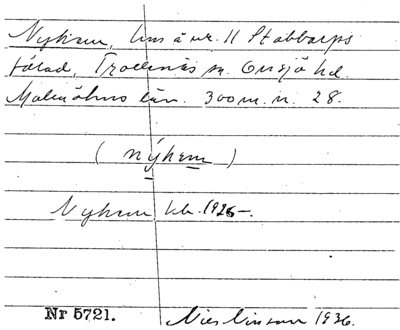 Nyhem, hus å nr. 11 Stabbarps
fälad, Trollenäs sn. Onsjö hd.
Malmöhus län. 300 m. n. 28.
( nýhem )
Nyhem kb. 1926-.
Nr 5721. Nils 1936.